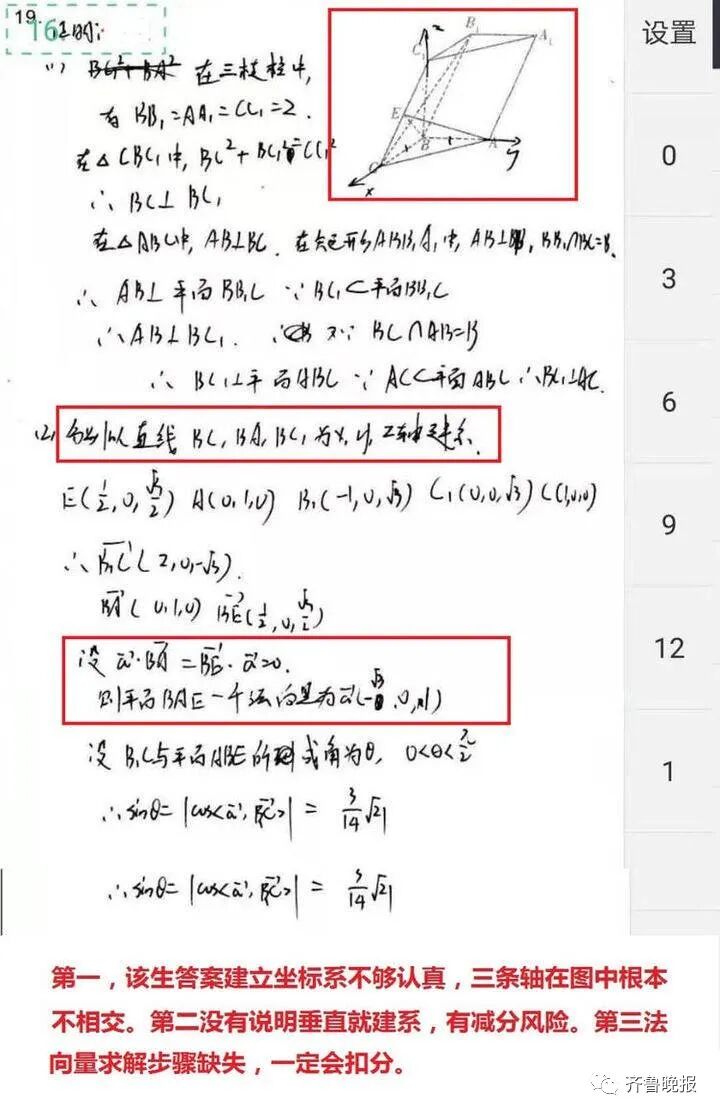 19.
16
证明:
设置
(1) BC₁²+BA² 在三棱柱中,
有 BB₁=AA₁=CC₁=2.
在△CBC₁中, BC²+BC₁²=CC₁²
∴ BC⊥BC₁
在△ABC中, AB⊥BC. 在矩形ABB₁A₁中, AB⊥BB₁, BB₁∩BC=B.
∴ AB⊥平面BB₁C ∵ BC₁⊂平面BB₁C
∴AB⊥BC₁. 又∵ BC∩AB=B
∴ BC₁⊥平面ABC ∵ AC⊂平面ABC ∴BC₁⊥AC.
z
B₁
A₁
C₁
E
C
B
A
x
y
1
1
(2) 分别以直线 BC, BA, BC₁ 为x, y, z轴建系.
E(1/2, 0, √3/2) A(0,1,0) B₁(-1,0,√3) C₁(0,0,√3) C(1,0,0)
∴ B₁C(2,0,-√3).
BA(0,1,0) BE(1/2, 0, √3/2)
设 a·BA = BE·a=0.
则平面BAE一个法向量为a(-√3, 0, 1)
设 B₁C与平面ABE所成角为θ, 0<θ<π/2
∴sinθ= |cos<a, B₁C>| = 3/14 √21
∴sinθ= |cos<a, B₁C>| = 3/14 √21
0
3
6
9
12
1
第一，该生答案建立坐标系不够认真，三条轴在图中根本
不相交。第二没有说明垂直就建系，有减分风险。第三法
向量求解步骤缺失，一定会扣分。
齐鲁晚报